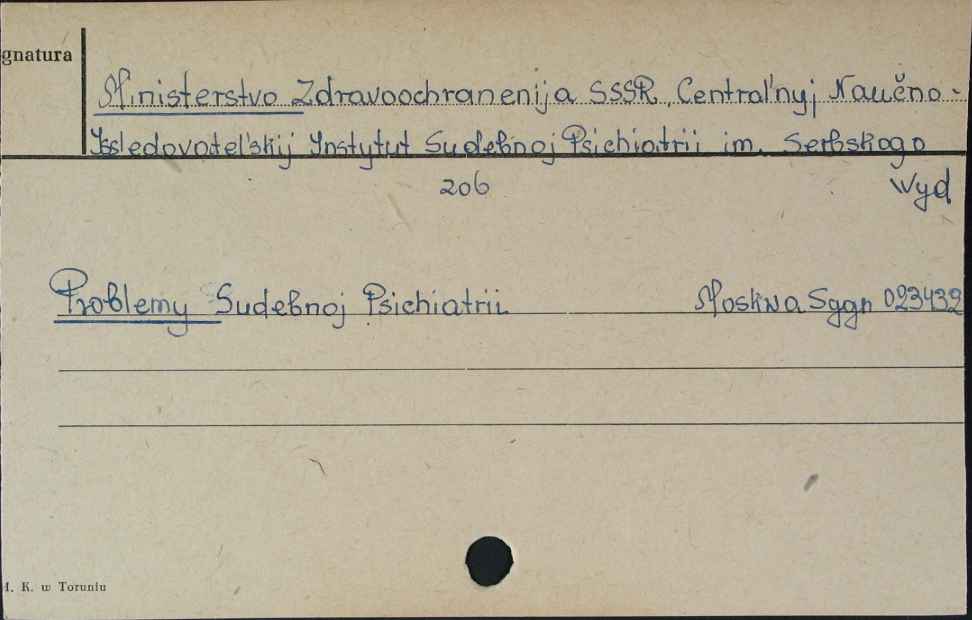 gnatura
Ministerstvo Zdravoochranenija SSSR, Central'nyj Naučno-
Issledovatel'skij Instytut Sudebnoj Psichiatrii im. Serbskogo
206
Wyd
Problemy Sudebnoj Psichiatrii Moskwa Sygn 023432
K. w Toruniu